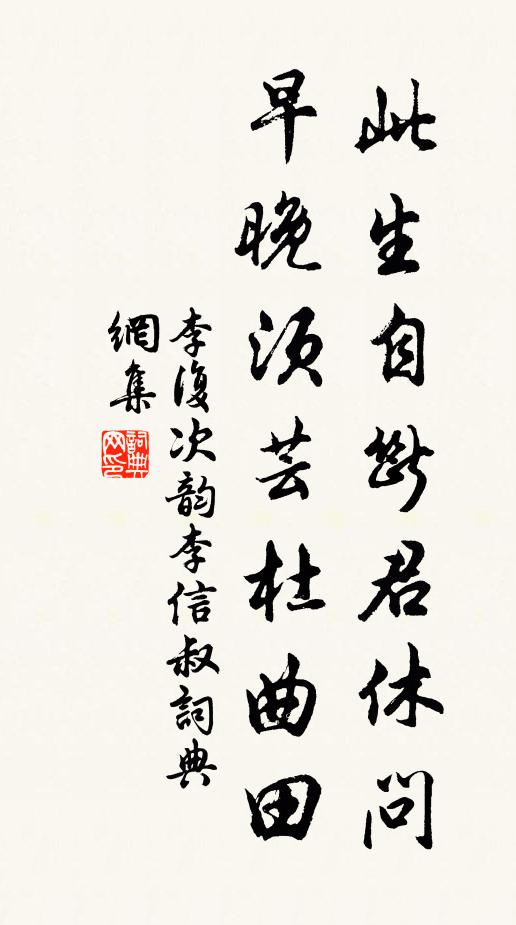 此生自斷君休問
早晚須芸杜曲田
李復次韵李信叔詞典
網集
詞典网印